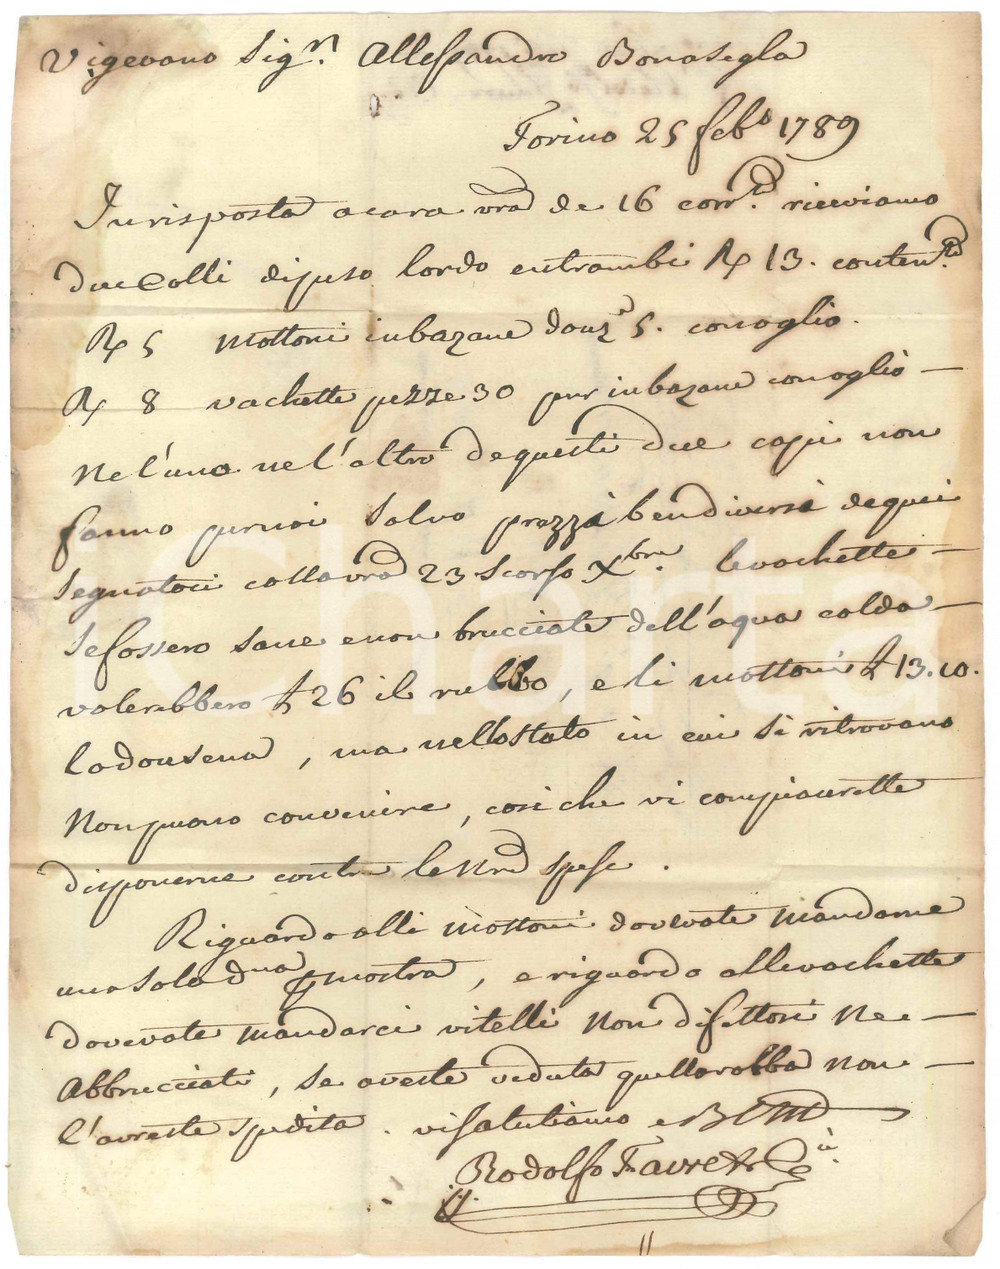 Vigevano Sig.n Allessandro Bonasegla
Torino 25 feb.o 1789
In risposta a cara vra de 16 corr.te riceviamo
due Colli di peso lordo entrambi R 13. conten.ti
R 5 mottoni in bazane douz.e 5. con oglio.
R 8 vachette pezze 30 pur in bazane con oglio —
Ne l'uno ne l'altro de questi due capi non
fanno per noi salvo prezzi ben diversi de quei
segnatoci colla vra 23 scorso Xbre. le vachette —
se fossero sane e non brucciate dell'aqua calda —
valerebbero £ 26 il rubbo, e li mottoni £ 13.10.
la douzena, ma nello stato in cui si ritrovano
Non puono convenire, cosi che vi compiacerette
disporne contro le nre spese.
Riguardo alli mottoni dovevate mandarne
una sola dna p mostra, e riguardo alle vachette
dovevate mandarci vitelli non difettosi ne —
Abbrucciati, se aveste veduta quella robba non —
l'avreste spedita. vi salutiamo e B L M
Rodolfo Favre & C.a
Charta